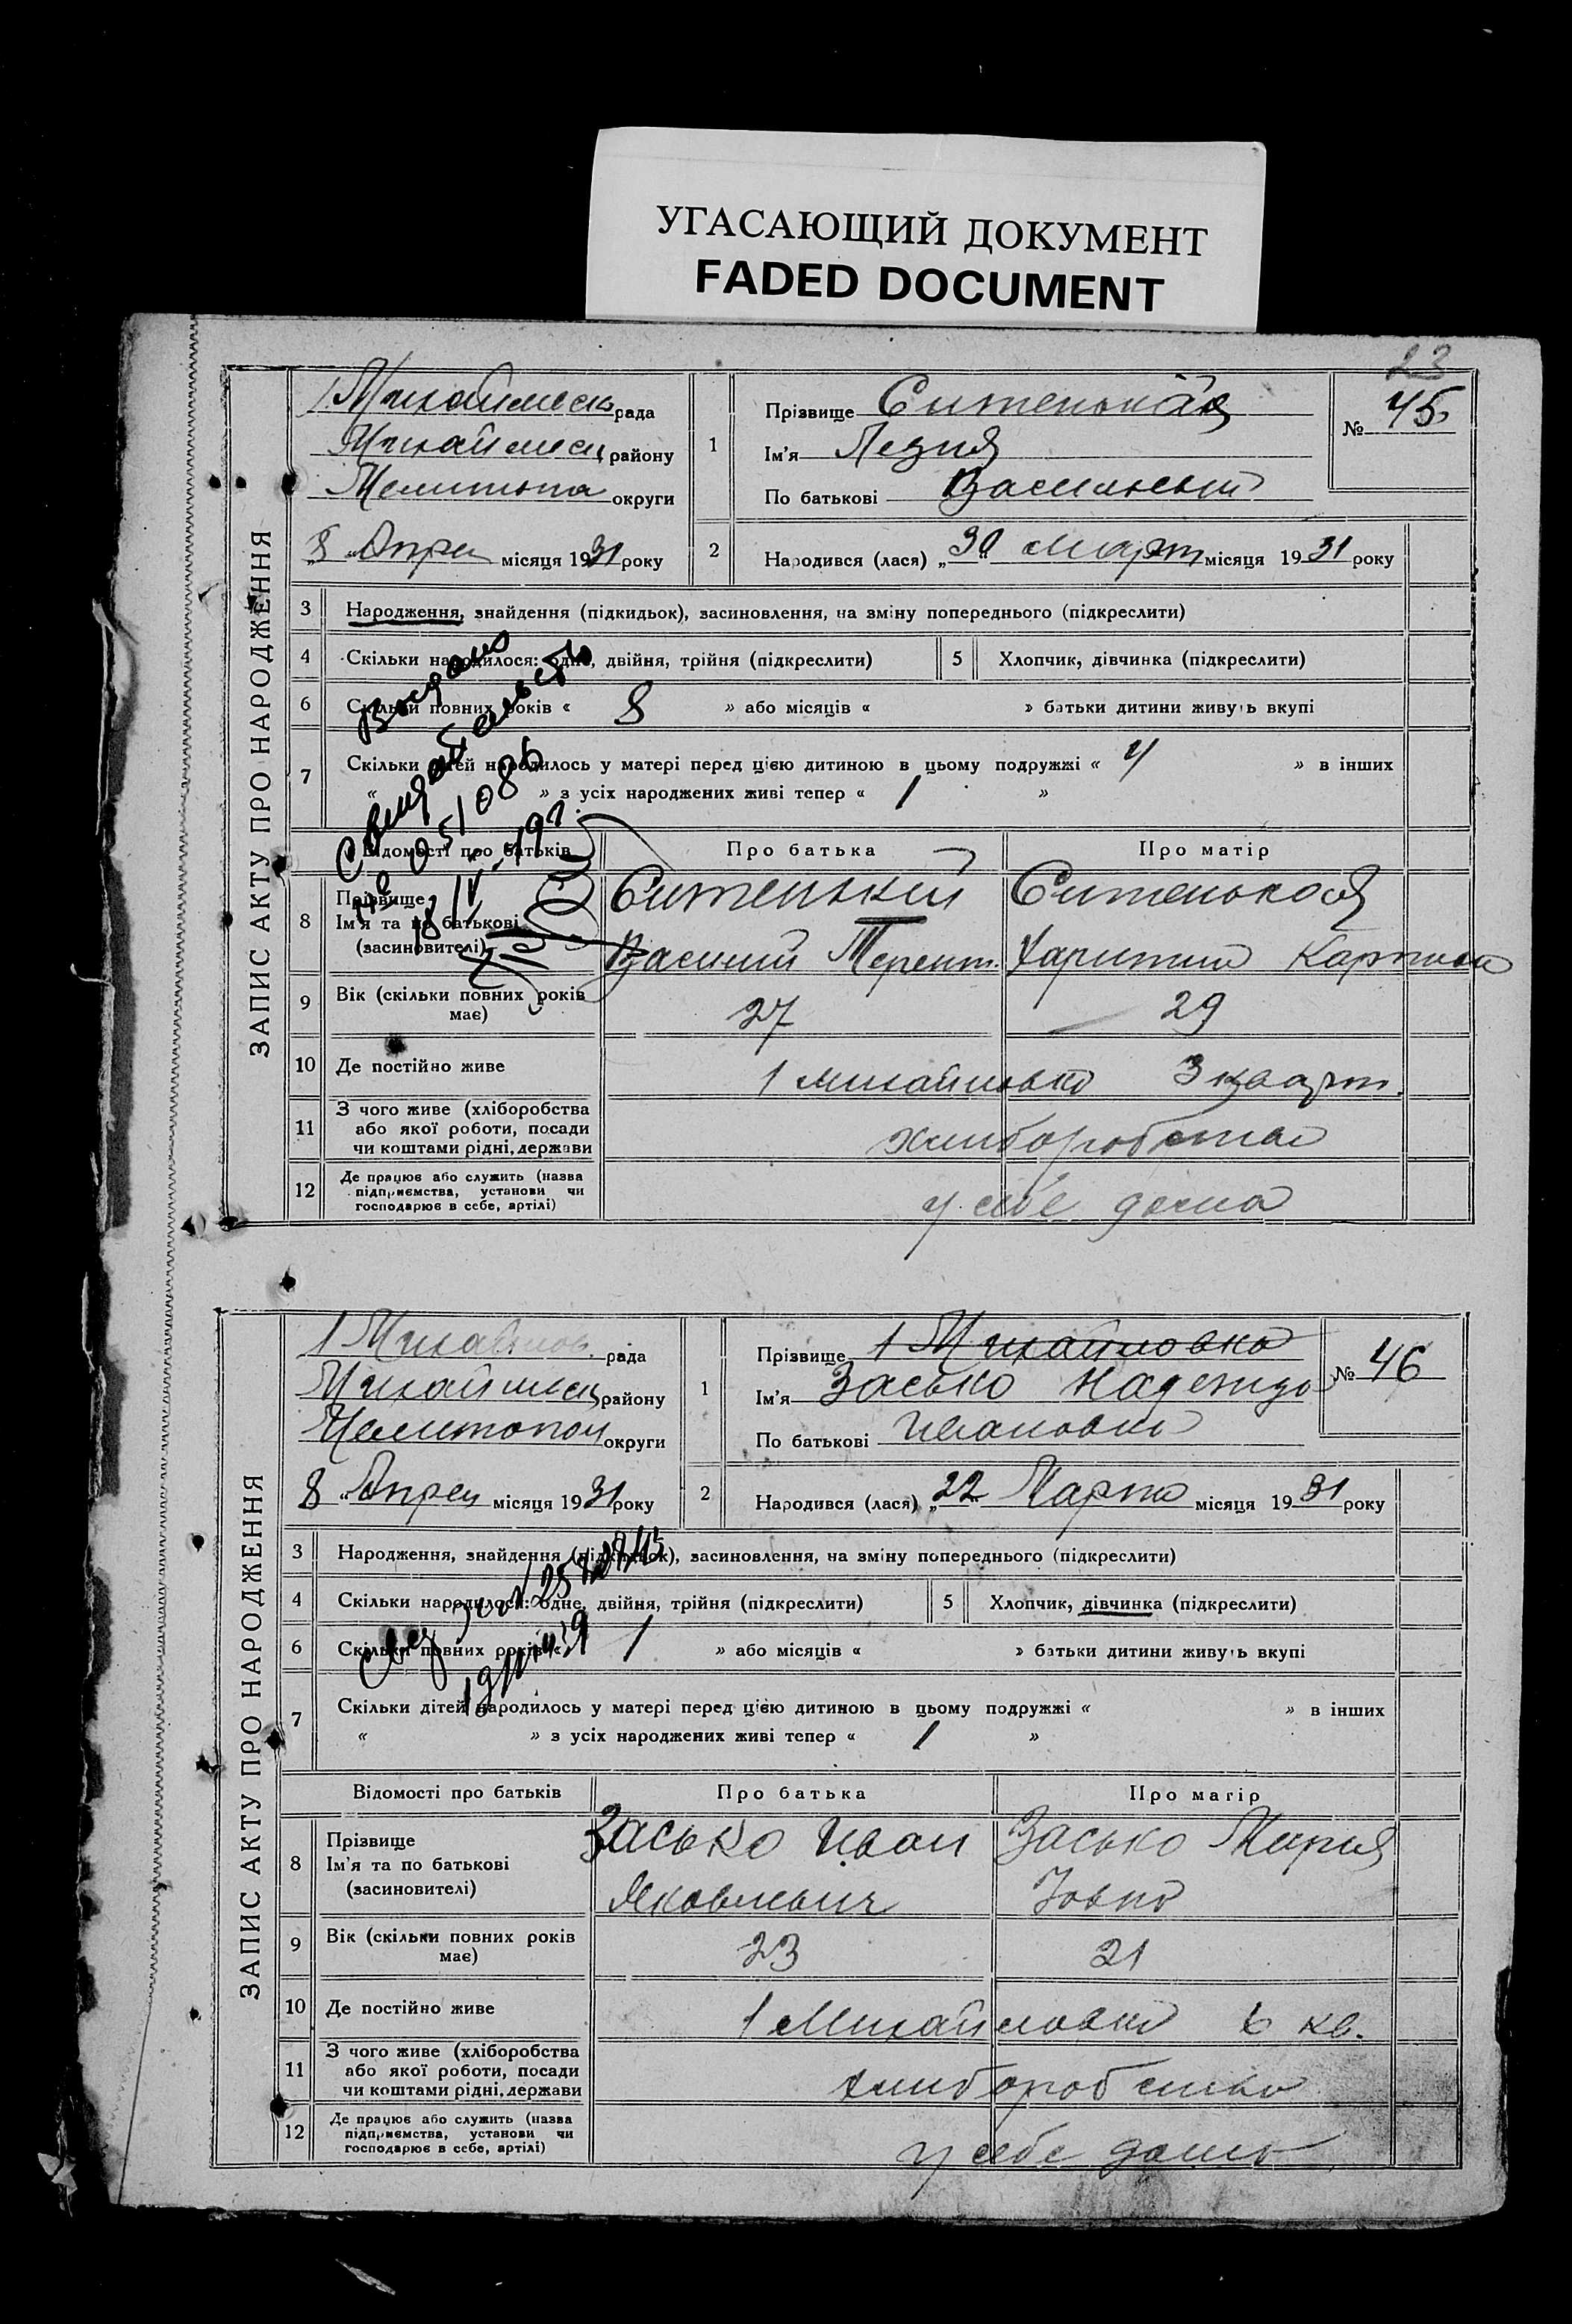 УГАСАЮЩИЙ ДОКУМЕНТ
FADED DOCUMENT
23
ЗАПИС АКТУ ПРО НАРОДЖЕННЯ
рада
району
округи
8 Апрел місяця 1931 року
1
Прізвище Ситенькая
Ім'я
По батькові
№ 45
2
Народився (лася) „30 Март місяця 1931 року
3 Народження, знайдення (підкидьок), засиновлення, на зміну попереднього (підкреслити)
4 Скільки народилося: одне, двійня, трійня (підкреслити)
5 Хлопчик, дівчинка (підкреслити)
6 Скільки повних років « 8 » або місяців « » батьки дитини живуть вкупі
7 Скільки дітей народилось у матері перед цією дитиною в цьому подружжі « 4 » в інших
« » з усіх народжених живі тепер « 1 »
Выдано
№ 051086
Відомості про батьків
Про батька
Про матір
8 Прізвище
Ім'я та по батькові
(засиновителі)
Ситенький
Василий Терент.
Ситенькая
9 Вік (скільки повних років має)
27
29
10 Де постійно живе
1 Михайловка 3 кварт.
11 З чого живе (хліборобства
або якої роботи, посади
чи коштами рідні, держави
12 Де працює або служить (назва
підприємства, установи чи
господарює в себе, артілі)
у себе дома
ЗАПИС АКТУ ПРО НАРОДЖЕННЯ
1 Михайлов. рада
району
округи
8 Апрел місяця 1931 року
1
Прізвище 1 Михайловка
Ім'я Засько Надежда
По батькові Ивановна
№ 46
2
Народився (лася) „22 Марта місяця 1931 року
3 Народження, знайдення (підкидьок), засиновлення, на зміну попереднього (підкреслити)
4 Скільки народилося: одне, двійня, трійня (підкреслити)
5 Хлопчик, дівчинка (підкреслити)
6 Скільки повних років « 1 » або місяців « » батьки дитини живуть вкупі
7 Скільки дітей народилось у матері перед цією дитиною в цьому подружжі « » в інших
« » з усіх народжених живі тепер « 1 »
Відомості про батьків
Про батька
Про матір
8 Прізвище
Ім'я та по батькові
(засиновителі)
Засько Иван
Яковлевич
Засько Мария
9 Вік (скільки повних років має)
23
21
10 Де постійно живе
1 Михайловка 6 кв.
11 З чого живе (хліборобства
або якої роботи, посади
чи коштами рідні, держави
12 Де працює або служить (назва
підприємства, установи чи
господарює в себе, артілі)
у себе дома